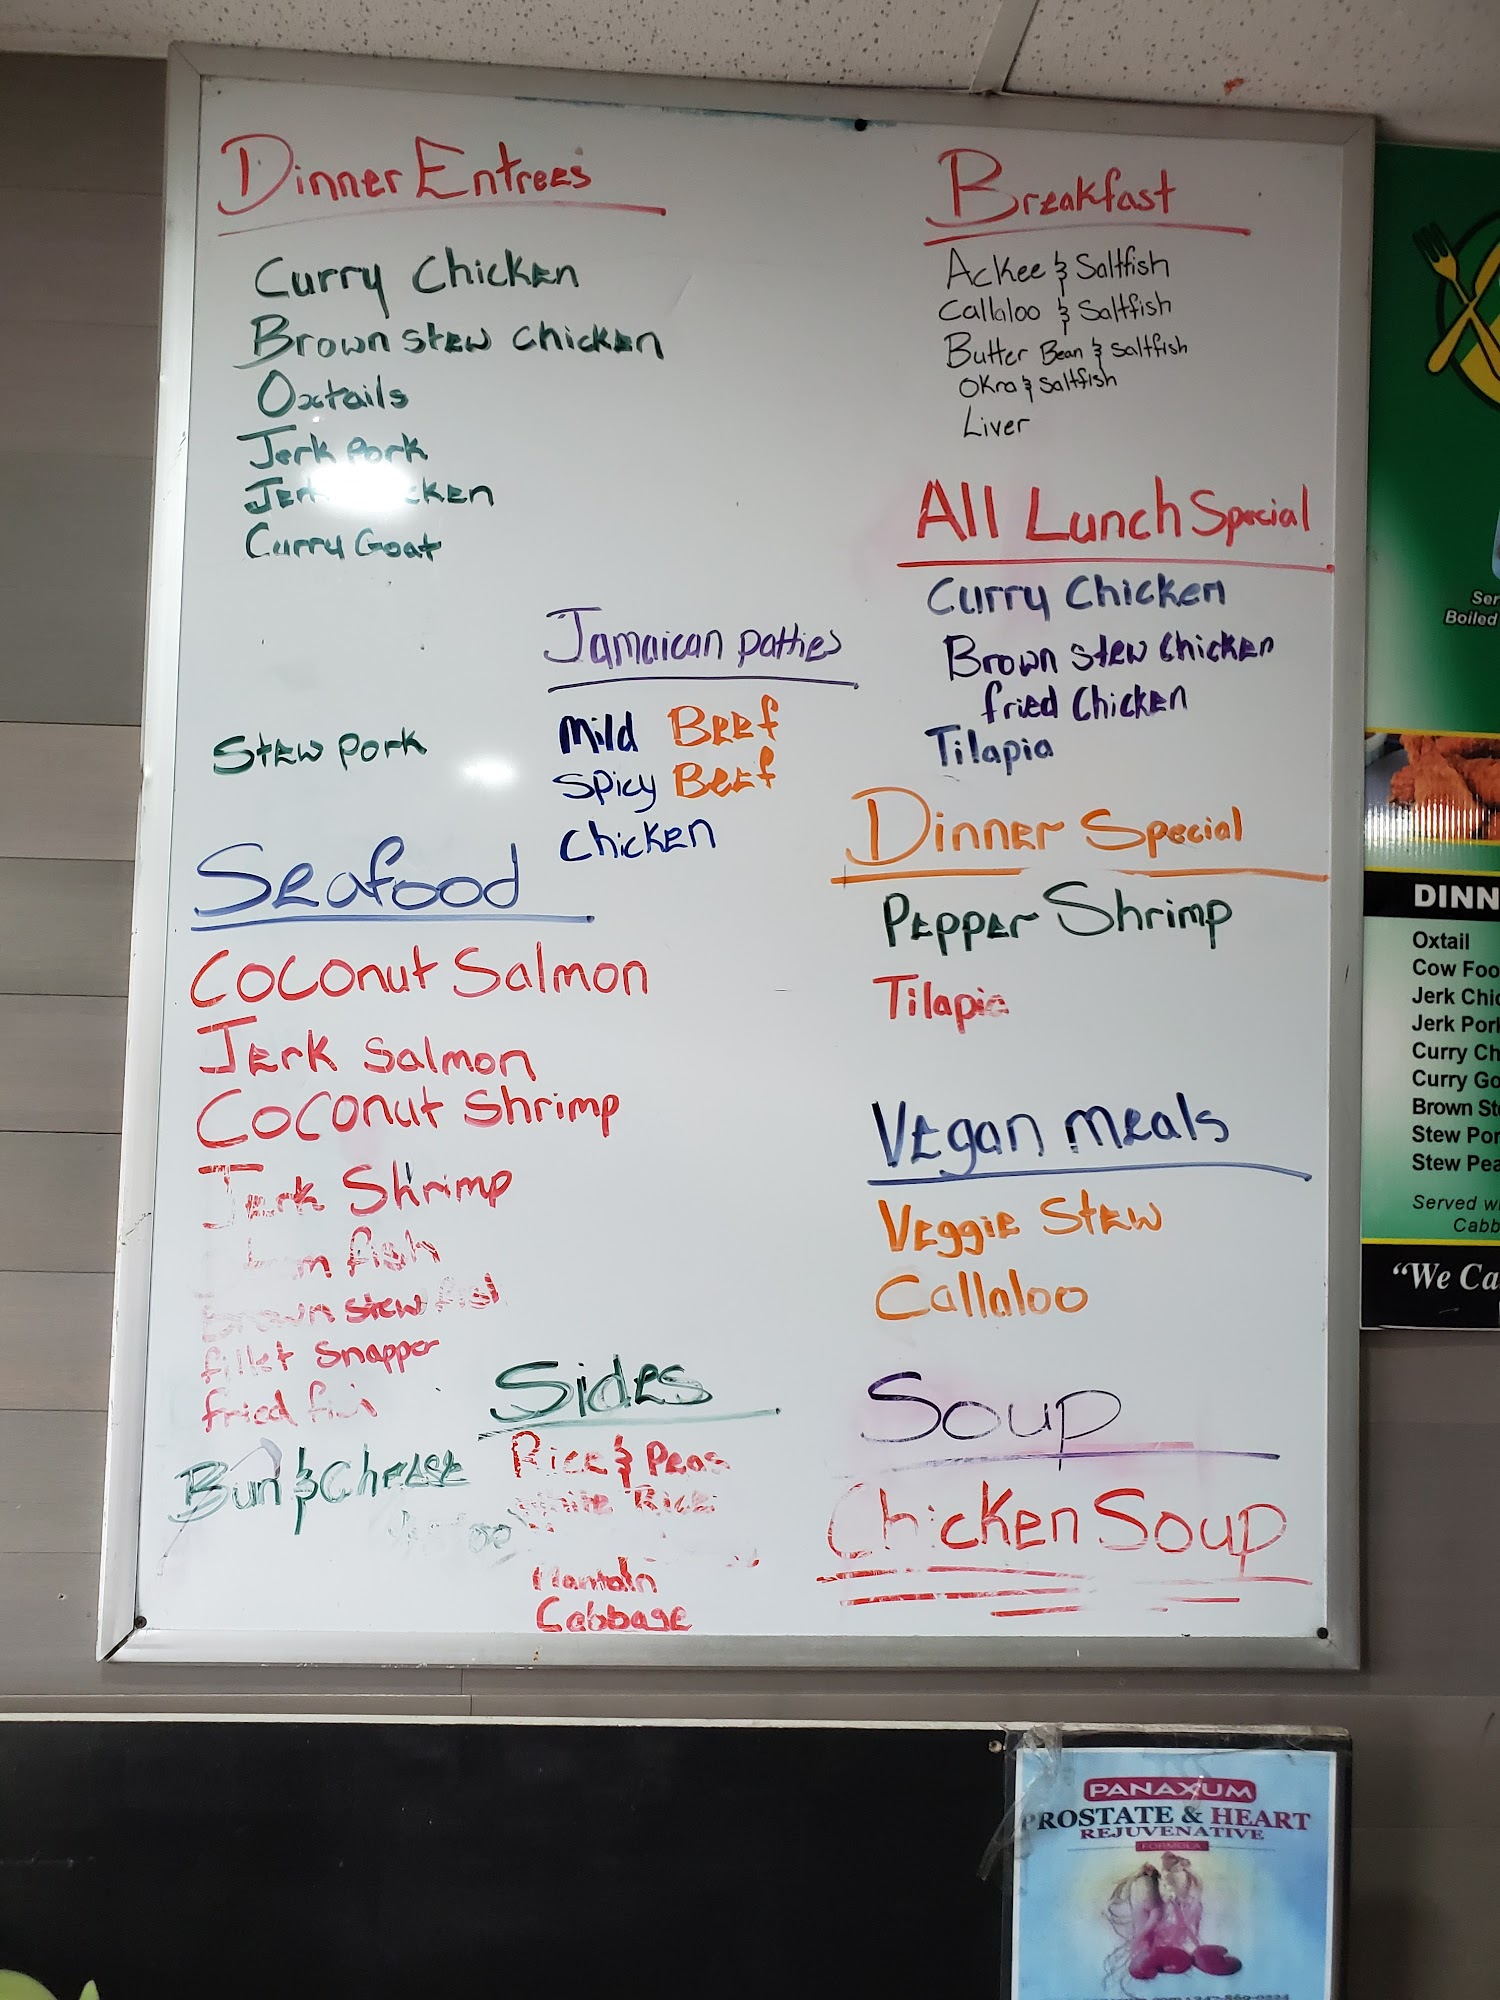 Dinner Entrees
Curry Chicken
Brown stew chicken
Oxtails
Jerk Pork
Curry Goat
Stew Pork
Jamaican patties
Mild Beef
Spicy Beef
Chicken
Seafood
Coconut Salmon
Jerk Salmon
Coconut Shrimp
Jerk Shrimp
fish
Brown stew fish
fillet Snapper
fried
Bun & Cheese
Sides
Rice & Peas
White Rice
Plantain
Cabbage
Breakfast
Ackee & Saltfish
Callaloo & Saltfish
Butter Bean & Saltfish
Okra & Saltfish
Liver
All Lunch Special
Curry Chicken
Brown stew Chicken
fried Chicken
Tilapia
Dinner Special
Pepper Shrimp
Tilapia
Vegan Meals
Veggie Stew
Callaloo
Soup
Chicken Soup
Boiled
Oxtail
Cow
Jerk
Jerk
Curry
Curry
Brown
Stew
Stew
Served
“We
PANAXUM
PROSTATE & HEART
REJUVENATIVE
FORMULA